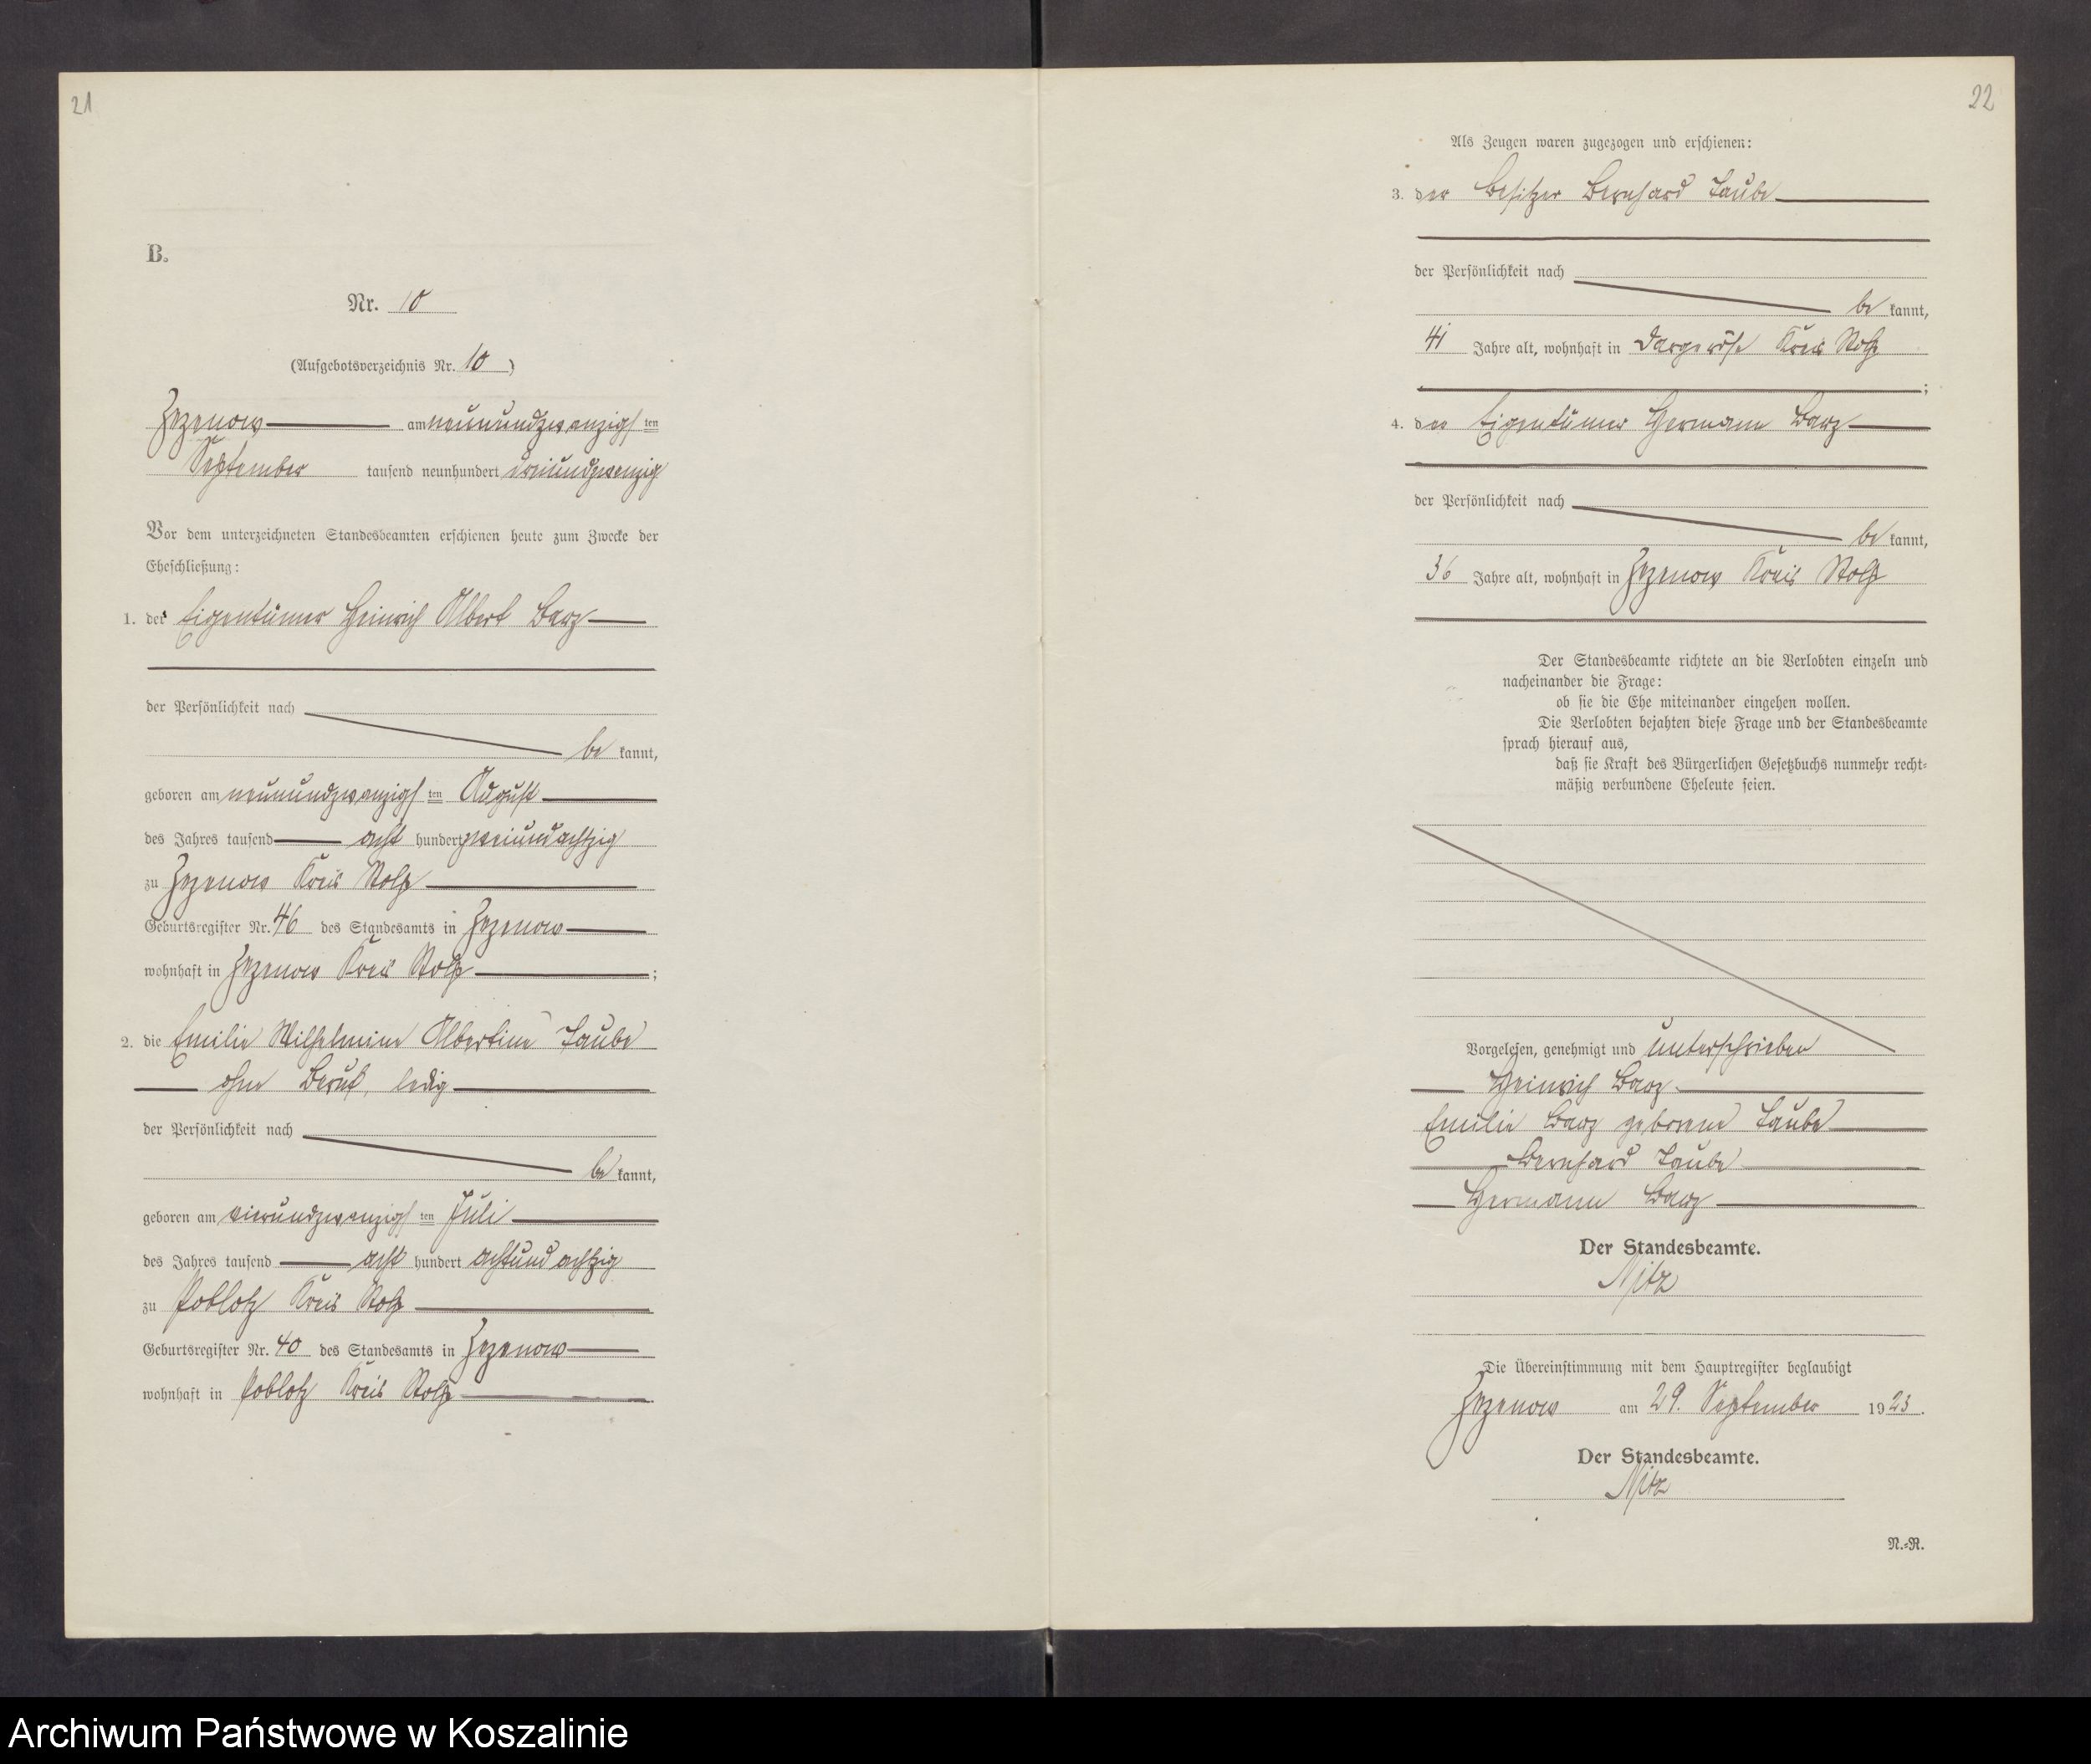 21
B.
Nr. 10
(Aufgebotsverzeichnis Nr. 10)
Zezenow am neunundzwanzigsten
September tausend neunhundert dreiundzwanzig
Vor dem unterzeichneten Standesbeamten erschienen heute zum Zwecke der
Eheschließung:
1. der Eigentümer Heinrich Albert Barz
der Persönlichkeit nach
be kannt,
geboren am neunundzwanzigsten August
des Jahres tausend acht hundert zweiundachtzig
zu Zezenow Kreis Stolp
Geburtsregister Nr. 46 des Standesamts in Zezenow
wohnhaft in Zezenow Kreis Stolp;
2. die Emilie Wilhelmine Albertine Taube
ohne Beruf, ledig
der Persönlichkeit nach
be kannt,
geboren am vierundzwanzigsten Juli
des Jahres tausend acht hundert achtundachtzig
zu Poblotz Kreis Stolp
Geburtsregister Nr. 40 des Standesamts in Zezenow
wohnhaft in Poblotz Kreis Stolp.
22
Als Zeugen waren zugezogen und erschienen:
3. der Besitzer Bernhard Taube
der Persönlichkeit nach
be kannt,
41 Jahre alt, wohnhaft in Dargeröse Kreis Stolp
;
4. der Eigentümer Hermann Barz
der Persönlichkeit nach
be kannt,
36 Jahre alt, wohnhaft in Zezenow Kreis Stolp
Der Standesbeamte richtete an die Verlobten einzeln und
nacheinander die Frage:
ob sie die Ehe miteinander eingehen wollen.
Die Verlobten bejahten diese Frage und der Standesbeamte
sprach hierauf aus,
daß sie Kraft des Bürgerlichen Gesetzbuchs nunmehr recht-
mäßig verbundene Eheleute seien.
Vorgelesen, genehmigt und unterschrieben
Heinrich Barz
Emilie Barz geborene Taube
Bernhard Taube
Hermann Barz
Der Standesbeamte.
Nitz
Die Übereinstimmung mit dem Hauptregister beglaubigt
Zezenow am 29. September 1923.
Der Standesbeamte.
Nitz
N.-R.
Archiwum Państwowe w Koszalinie